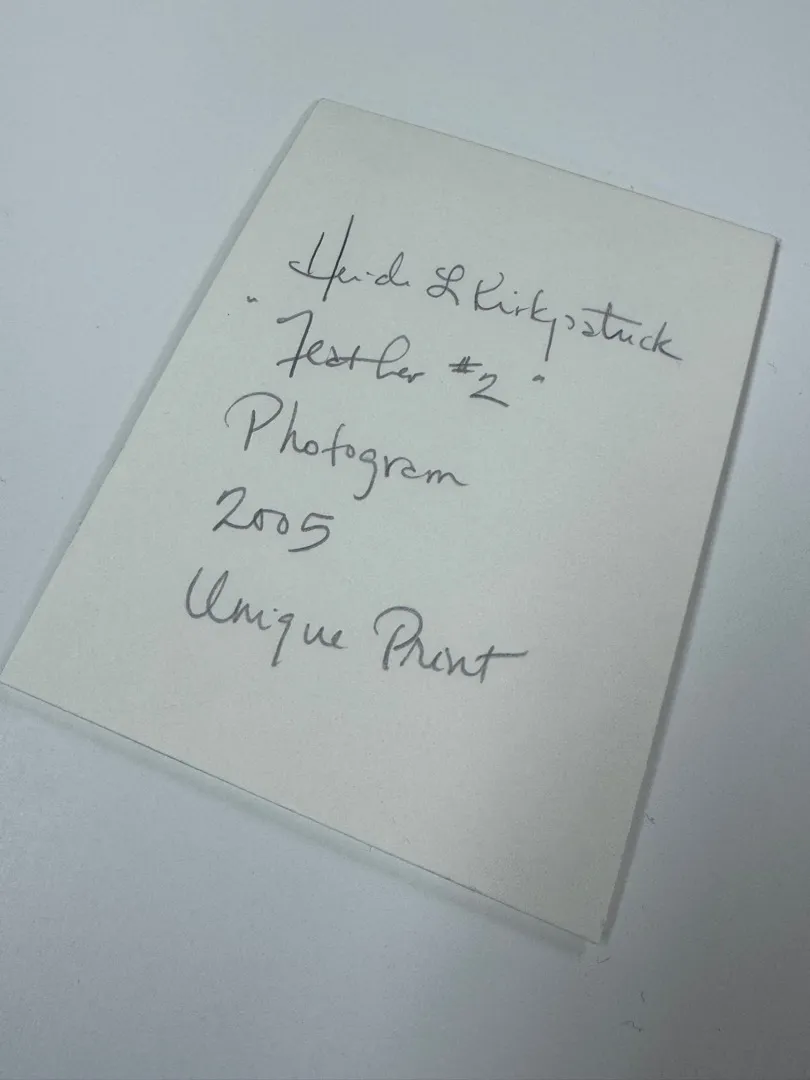 Heidi L Kirkpatrick
"Feather #2"
Photogram
2005
Unique Print